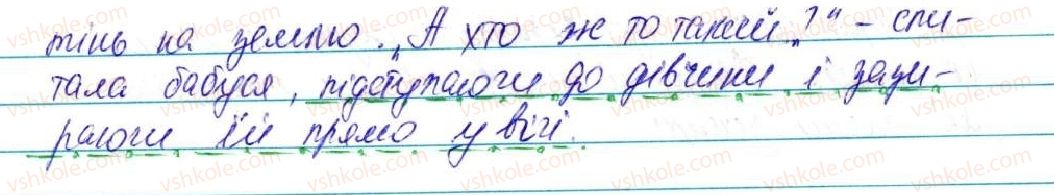 тінь на землю. „А хто ж то такий?" – спи-
тала бабуся, підступаючи до дівчини і зази-
раючи їй прямо у вічі.